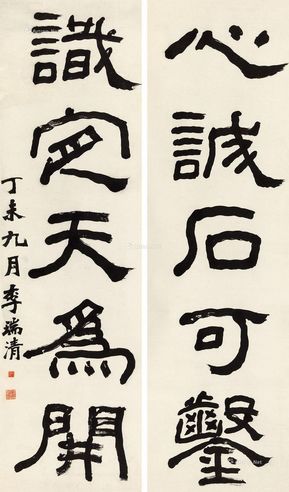 心誠石可鑿
識定天爲開
丁未九月李瑞清